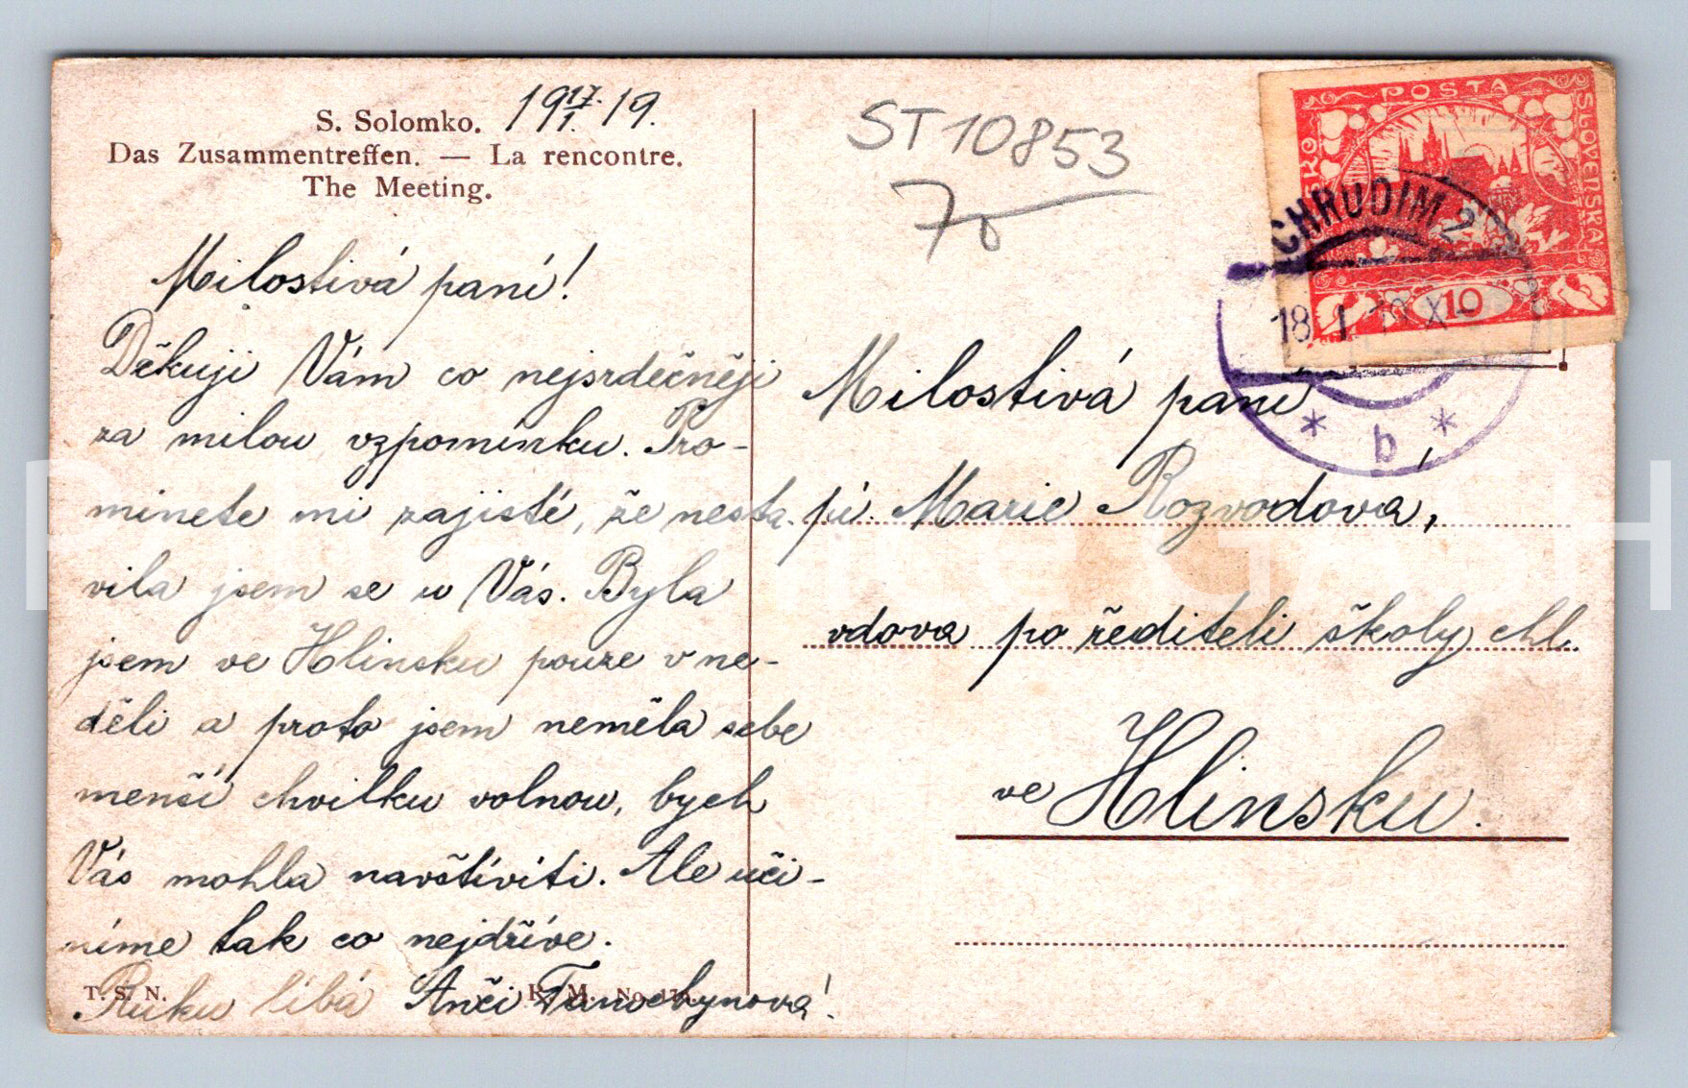 S. Solomko. 19 17./1. 19.
Das Zusammentreffen. — La rencontre.
The Meeting.
Milostivá paní!
Děkuji Vám co nejsrdečněji
za milou vzpomínku. Pro-
minete mi zajisté, že nesta-
vila jsem se u Vás. Byla
jsem ve Hlinsku pouze v ne-
děli a proto jsem neměla sebe
menší chvilku volnou, bych
Vás mohla navštíviti. Ale uči-
níme tak co nejdříve.
Ruku líbá Anči
T. S. N. R. M. No.
ST10853
70
POSTA
SLOVENSKA
10
CHRUDIM 2
18. I 19 X
* b *
Milostivá paní,
pí. Marie Rozvodová,
vdova po řediteli školy chl.
ve Hlinsku.